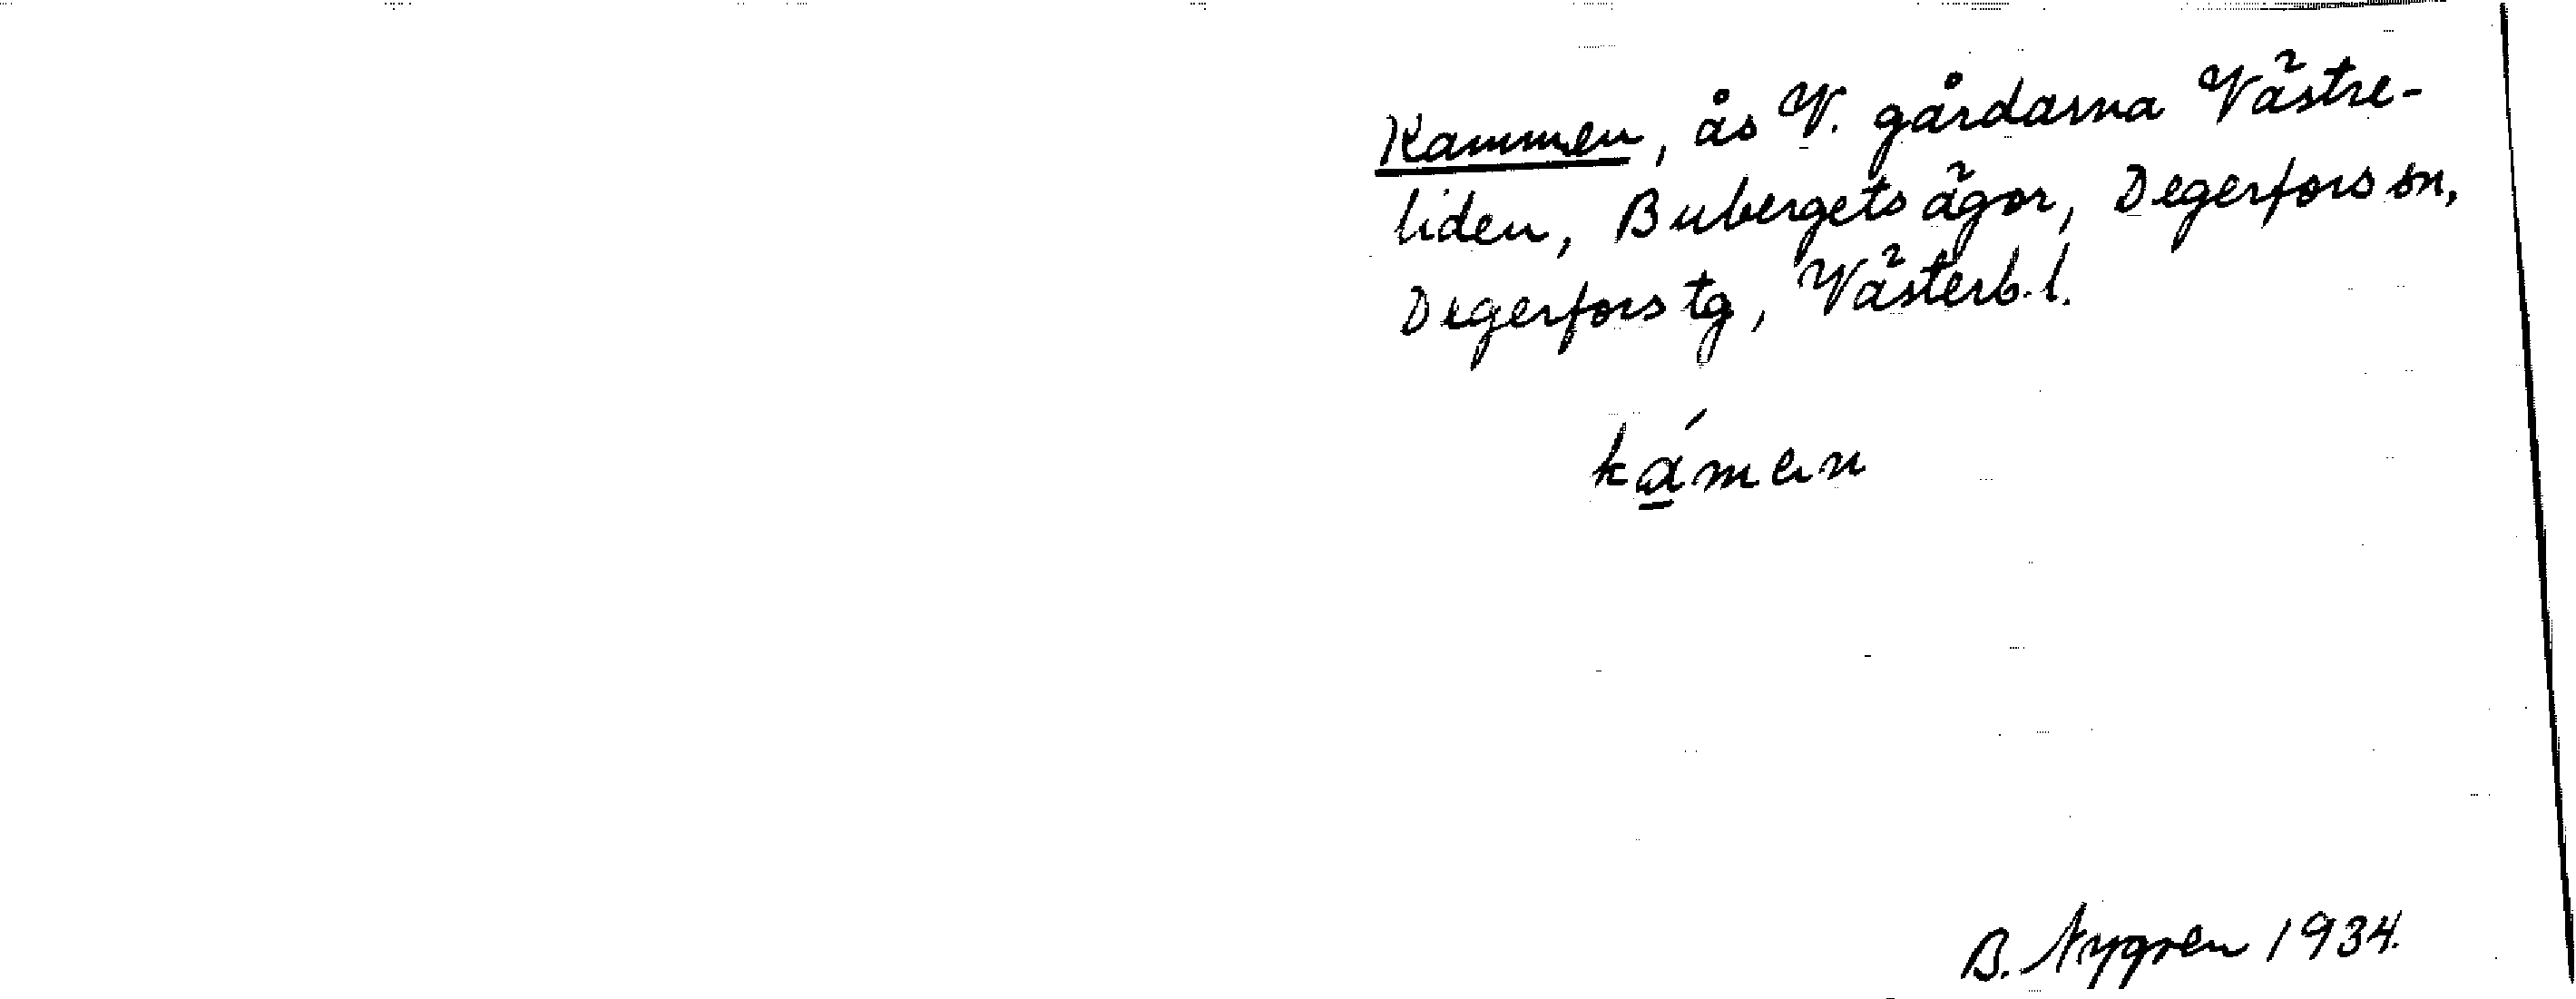 Kammen, ås V. gårdarna Västre-
liden, Bubergets ägor, Degerfors sn,
Degerfors tg, Västerb. l.
ká̱men
B. Nygren 1934.